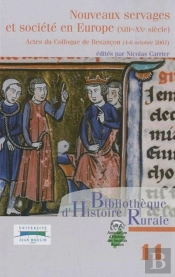 Nouveaux servages
et société en Europe (XIIIe-XXe siècle)
Actes du Colloque de Besançon (4-6 octobre 2007)
édités par Nicolas Carrier
Bibliothèque
d'Histoire
Rurale
UNIVERSITÉ
JEAN MOULIN
11
B